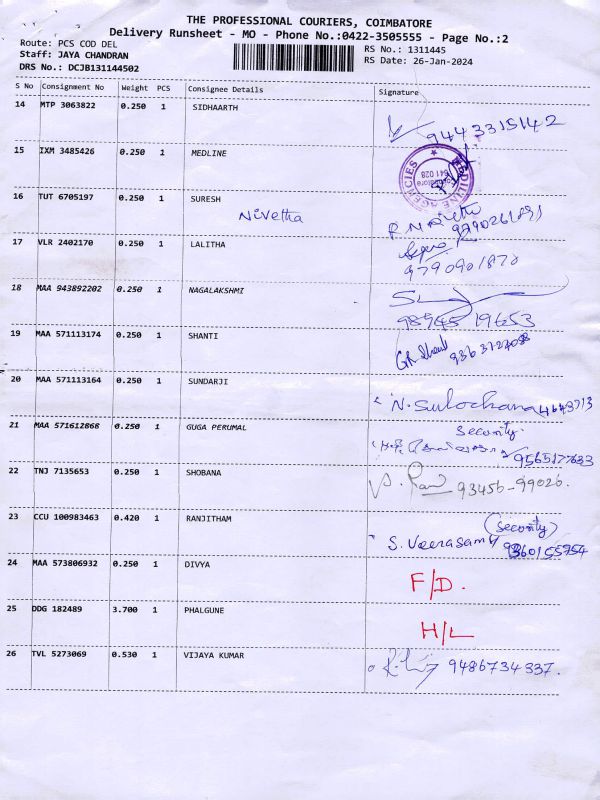 THE PROFESSIONAL COURIERS, COIMBATORE
Delivery Runsheet - MO - Phone No.:0422-3505555 - Page No.:2
Route: PCS COD DEL
RS No.: 1311445
Staff: JAYA CHANDRAN
RS Date: 26-Jan-2024
DRS No.: DCJB131144502
S No Consignment No Weight PCS Consignee Details Signature
14 MTP 3063822 0.250 1 SIDHAARTH
9443315142
15 IXM 3485426 0.250 1 MEDLINE
MEDILINE AGENCIES
Coimbatore
641 028
16 TUT 6705197 0.250 1 SURESH
Nivetha
R Nivetha
9790261891
17 VLR 2402170 0.250 1 LALITHA
9790901870
18 MAA 943892202 0.250 1 NAGALAKSHMI
98945 19653
19 MAA 571113174 0.250 1 SHANTI
20 MAA 571113164 0.250 1 SUNDARJI
N. Sulochana
21 MAA 571612868 0.250 1 GUGA PERUMAL
Security
9565177633
22 TNJ 7135653 0.250 1 SHOBANA
93456-99026.
23 CCU 100983463 0.420 1 RANJITHAM
(Security)
S. Veerasamy
24 MAA 573806932 0.250 1 DIVYA
F/D.
25 DDG 182489 3.700 1 PHALGUNE
H/L
26 TVL 5273069 0.530 1 VIJAYA KUMAR
9486734337.